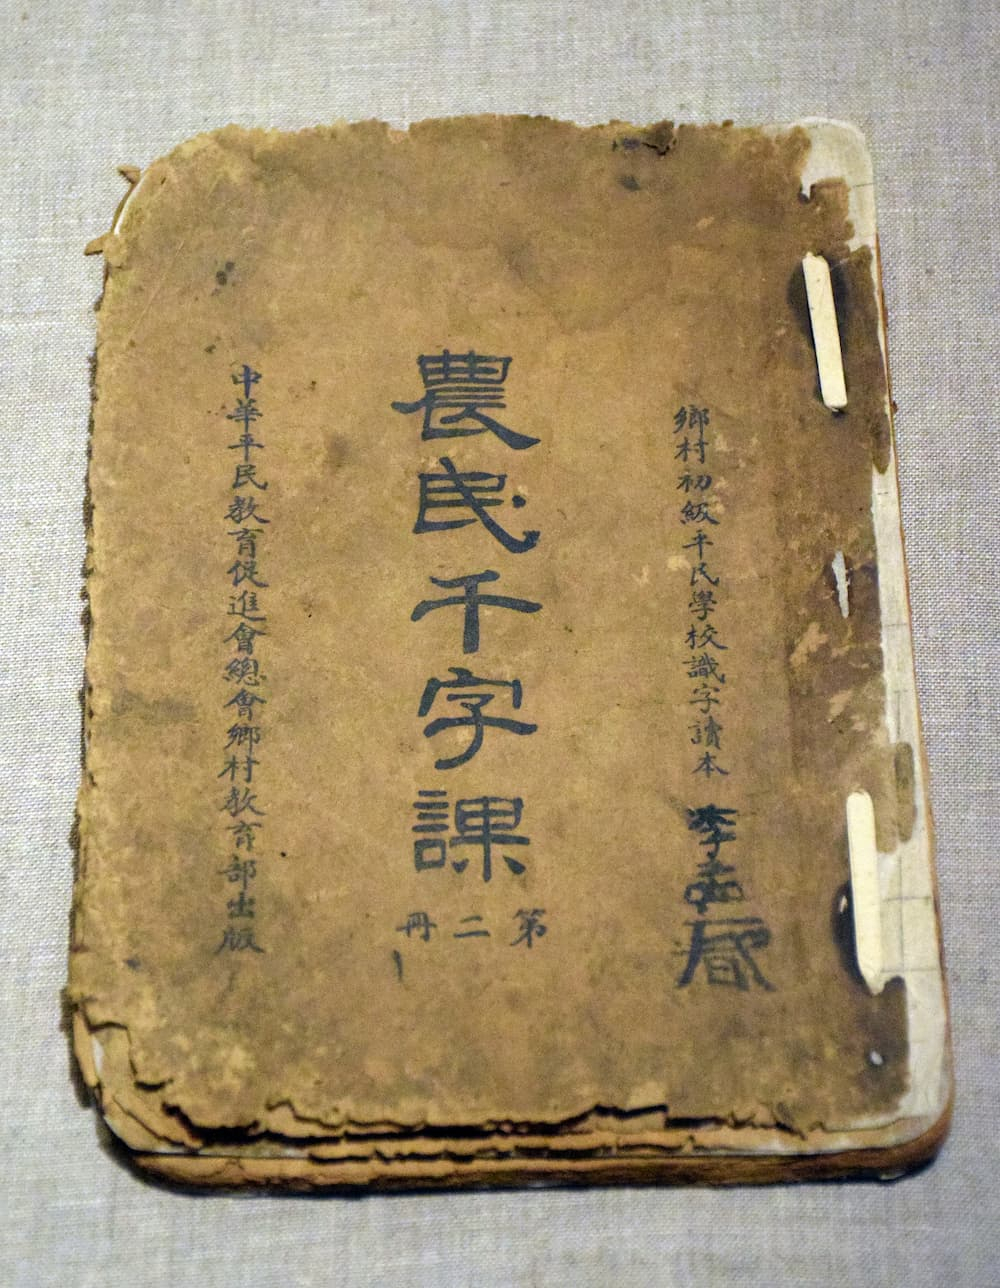 鄉村初級平民學校識字讀本 李
農民千字課
第二冊
中華平民教育促進會總會鄉村教育部出版